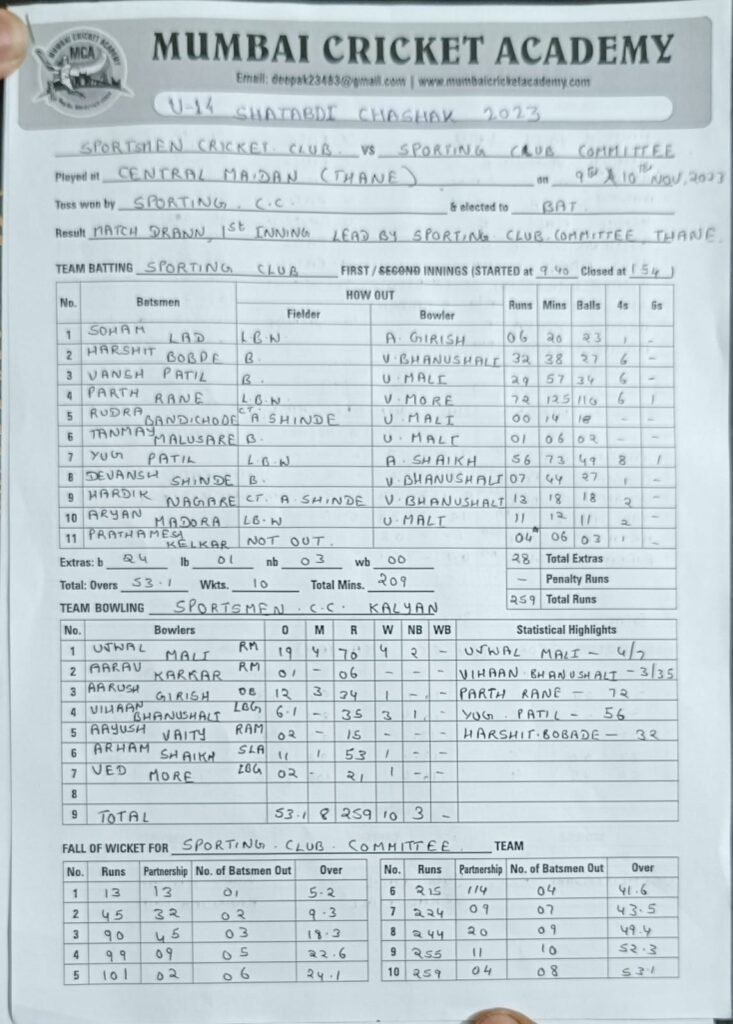 MUMBAI CRICKET ACADEMY
MCA
MUMBAI CRICKET ACADEMY
Email: deepak23483@gmail.com | www.mumbaicricketacademy.com
U-14 SHATABDI CHASHAK 2023
SPORTSMEN CRICKET CLUB VS SPORTING CLUB COMMITTEE
Played at CENTRAL MAIDAN (THANE) on 9th & 10TH NOV, 2023
Toss won by SPORTING C.C. & elected to BAT
Result MATCH DRAWN, 1st INNING LEAD BY SPORTING CLUB COMMITTEE, THANE
TEAM BATTING SPORTING CLUB FIRST / SECOND INNINGS (STARTED at 9.40 Closed at 1.54)
No. Batsmen HOW OUT Runs Mins Balls 4s 6s
Fielder Bowler
1 SOHAM LAD L.B.W A. GIRISH 06 20 23 1 -
2 HARSHIT BOBDE B. V. BHANUSHALI 32 38 27 6 -
3 VANSH PATIL B. U. MALI 29 57 34 6 -
4 PARTH RANE L.B.W V. MORE 72 125 110 6 1
5 RUDRA BANDICHODE CT. A SHINDE U. MALI 00 14 18 - -
6 TANMAY MALUSARE B. U. MALI 01 06 02 - -
7 YUG PATIL L.B.W A. SHAIKH 56 73 49 8 1
8 DEVANSH SHINDE B. V. BHANUSHALI 07 44 27 1 -
9 HARDIK NAGARE CT. A SHINDE V. BHANUSHALI 13 18 18 2 -
10 ARYAN MADORA LB.W U. MALI 11 12 11 2 -
11 PRATHAMESH KELKAR NOT OUT. 04* 06 03 1 -
Extras: b 24 lb 01 nb 03 wb 00 28 Total Extras
- Penalty Runs
Total: Overs 53.1 Wkts. 10 Total Mins. 209 259 Total Runs
TEAM BOWLING SPORTSMEN C.C. KALYAN
No. Bowlers O M R W NB WB Statistical Highlights
1 UJWAL MALI RM 19 4 70 4 2 - UJWAL MALI - 4/7
2 AARAV KARKAR RM 01 - 06 - - - VIHAAN BHANUSHALI - 3/35
3 AARUSH GIRISH OB 12 3 34 1 - - PARTH RANE - 72
4 VIHAAN BHANUSHALI LBG 6.1 - 35 3 1 - YUG PATIL - 56
5 AAYUSH VAITY RAM 02 - 15 - - - HARSHIT BOBADE - 32
6 ARHAM SHAIKH SLA 11 1 53 1 - -
7 VED MORE LBG 02 - 21 1 - -
8
9 TOTAL 53.1 8 259 10 3 -
FALL OF WICKET FOR SPORTING CLUB COMMITTEE TEAM
No. Runs Partnership No. of Batsmen Out Over
1 13 13 01 5.2
2 45 32 02 9.3
3 90 45 03 18.3
4 99 09 05 22.6
5 101 02 06 24.1
No. Runs Partnership No. of Batsmen Out Over
6 215 114 04 41.6
7 224 09 07 43.5
8 244 20 09 49.4
9 255 11 10 52.3
10 259 04 08 53.1